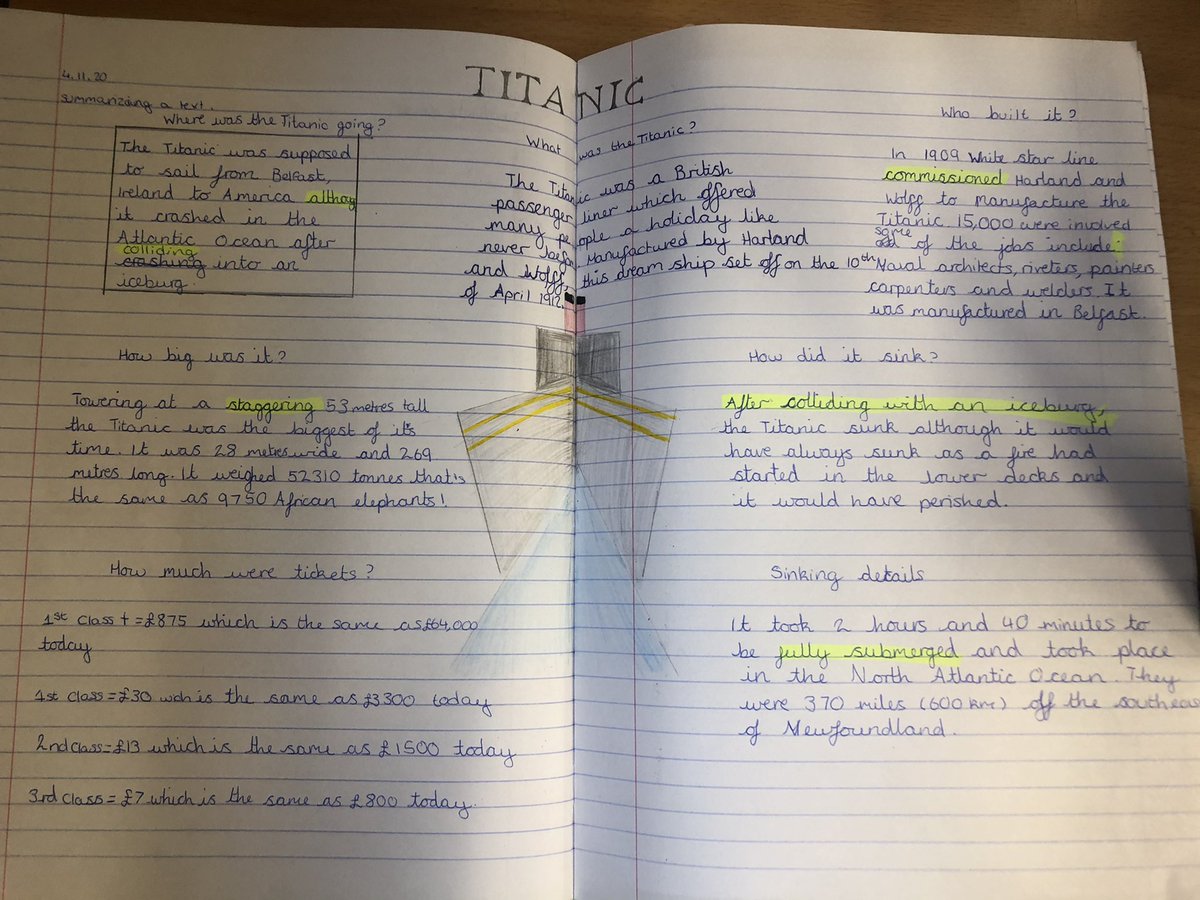 TITANIC
4.11.20
summarizing a text.
Where was the Titanic going?
The Titanic was supposed
to sail from Belfast,
Ireland to America althou
it crashed in the
Atlantic Ocean after
colliding
crashing into an
iceburg.
What was the Titanic?
The Titanic was a British
passenger liner which offered
many people a holiday like
never before. Manufactured by Harland
and Wolff, this dream ship set off on the 10th
of April 1912.
Who built it?
In 1909 White star line
commissioned Harland and
Wolff to manufacture the
Titanic. 15,000 were involved
some
of the jobs include:
Naval architects, riveters, painters
carpenters and welders. It
was manufactured in Belfast.
How big was it?
Towering at a staggering 53 metres tall
the Titanic was the biggest of it's
time. It was 28 metres wide and 269
metres long. It weighed 52310 tonnes that's
the same as 9750 African elephants!
How did it sink?
After colliding with an iceburg,
the Titanic sunk although it would
have always sunk as a fire had
started in the lower decks and
it would have perished.
How much were tickets?
1st Class + = £875 which is the same as £64,000
today
1st Class = £30 wch is the same as £3300 today
2nd Class = £13 which is the same as £1500 today
3rd Class = £7 which is the same as £800 today.
Sinking details
It took 2 hours and 40 minutes to
be fully submerged and took place
in the North Atlantic Ocean. They
were 370 miles (600 km) off the southeas
of Newfoundland.